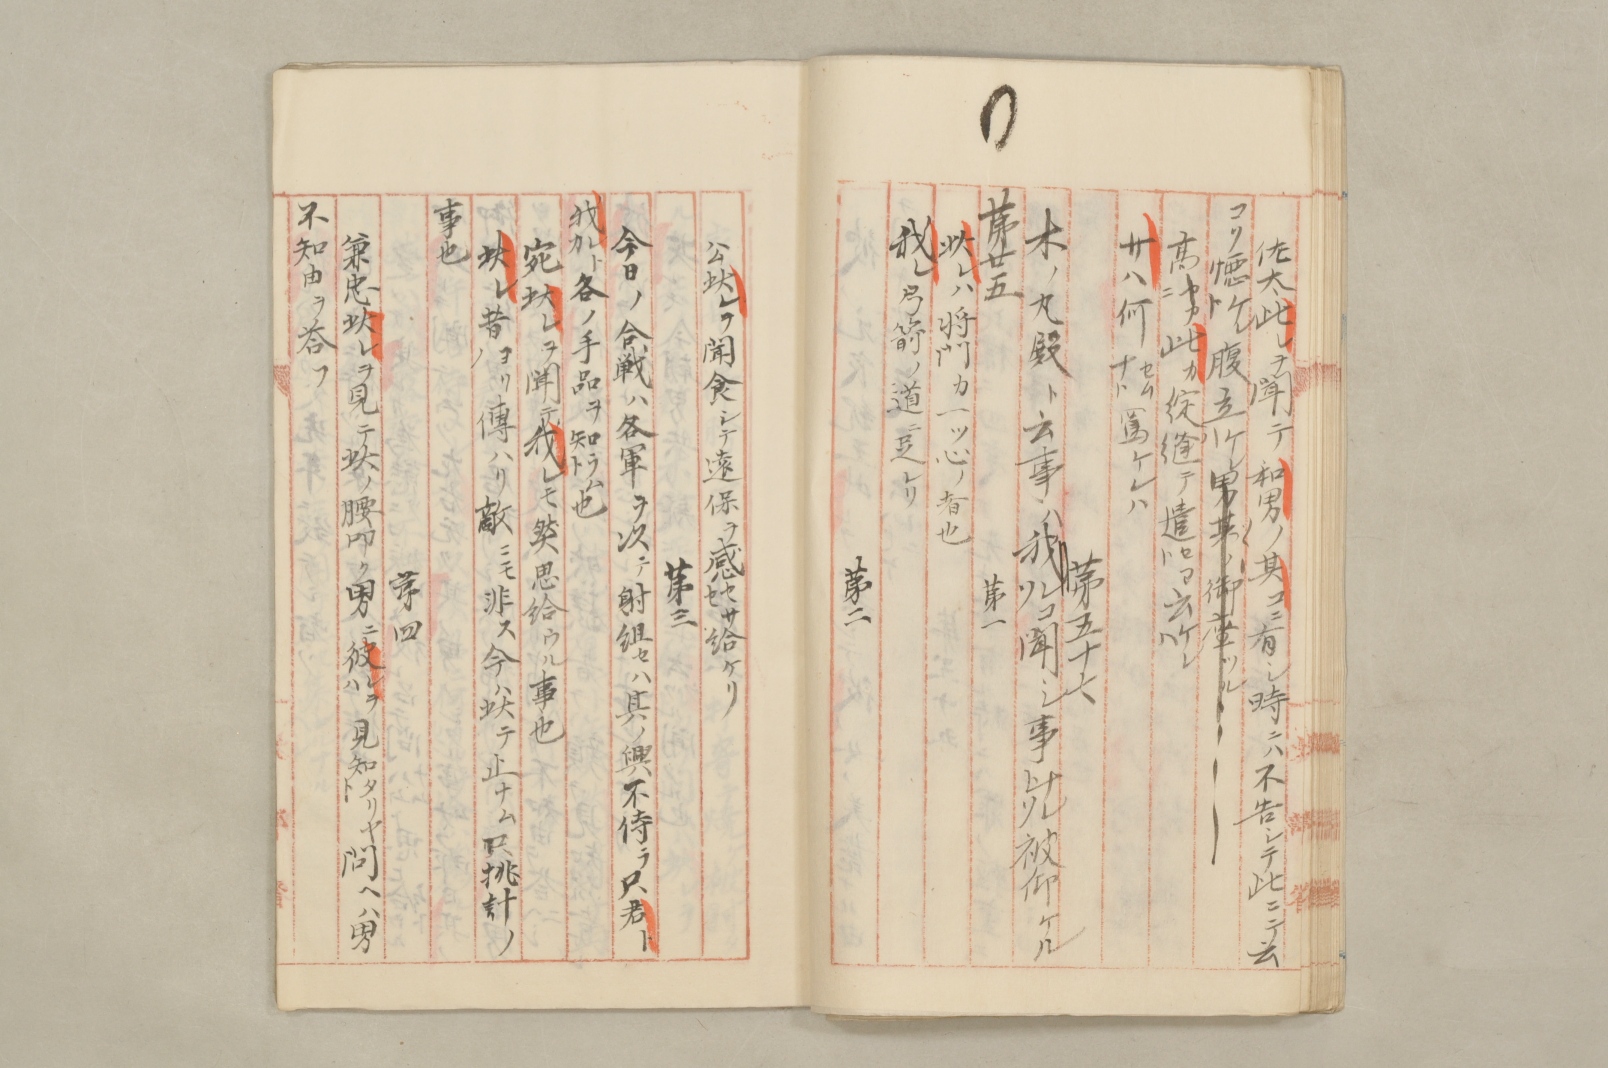 佐太此レヲ聞テ和男ノ其コニ有シ時ニハ不告シテ此ニシテ云
コソ憾ケレト腹立ケレハ男其ノ御庄ツル
高ヤカニ此カ綻縫テ遣セヨト云ケレハ
サハ何セムナト罵ケレハ
第五十七
木ノ丸殿ト云事ハ我レコソ聞シ事ナレトソ被仰ケル
第廿五
第一
此レハ将門カ一ツ心ノ者也
我レ弓箭ノ道ニ足レリ
第二
公此レヲ聞食シテ遠保ヲ感セサセ給ケリ
第三
今日ノ合戦ハ各軍ヲ以テ射組セハ其ノ興不侍ラ只君ト
我レカト各ノ手品ヲ知ラムト也
宛此レヲ聞テ我レモ然思給ウル事也
此レ昔ヨリ傳ハリ敵ニモ非ス今ハ此テ止ナム只挑計ノ
事也
第四
兼忠此レヲ見テ此ノ腰叩ク男ニ彼レヲハ見知タリヤト問ヘハ男
不知由ヲ答フ